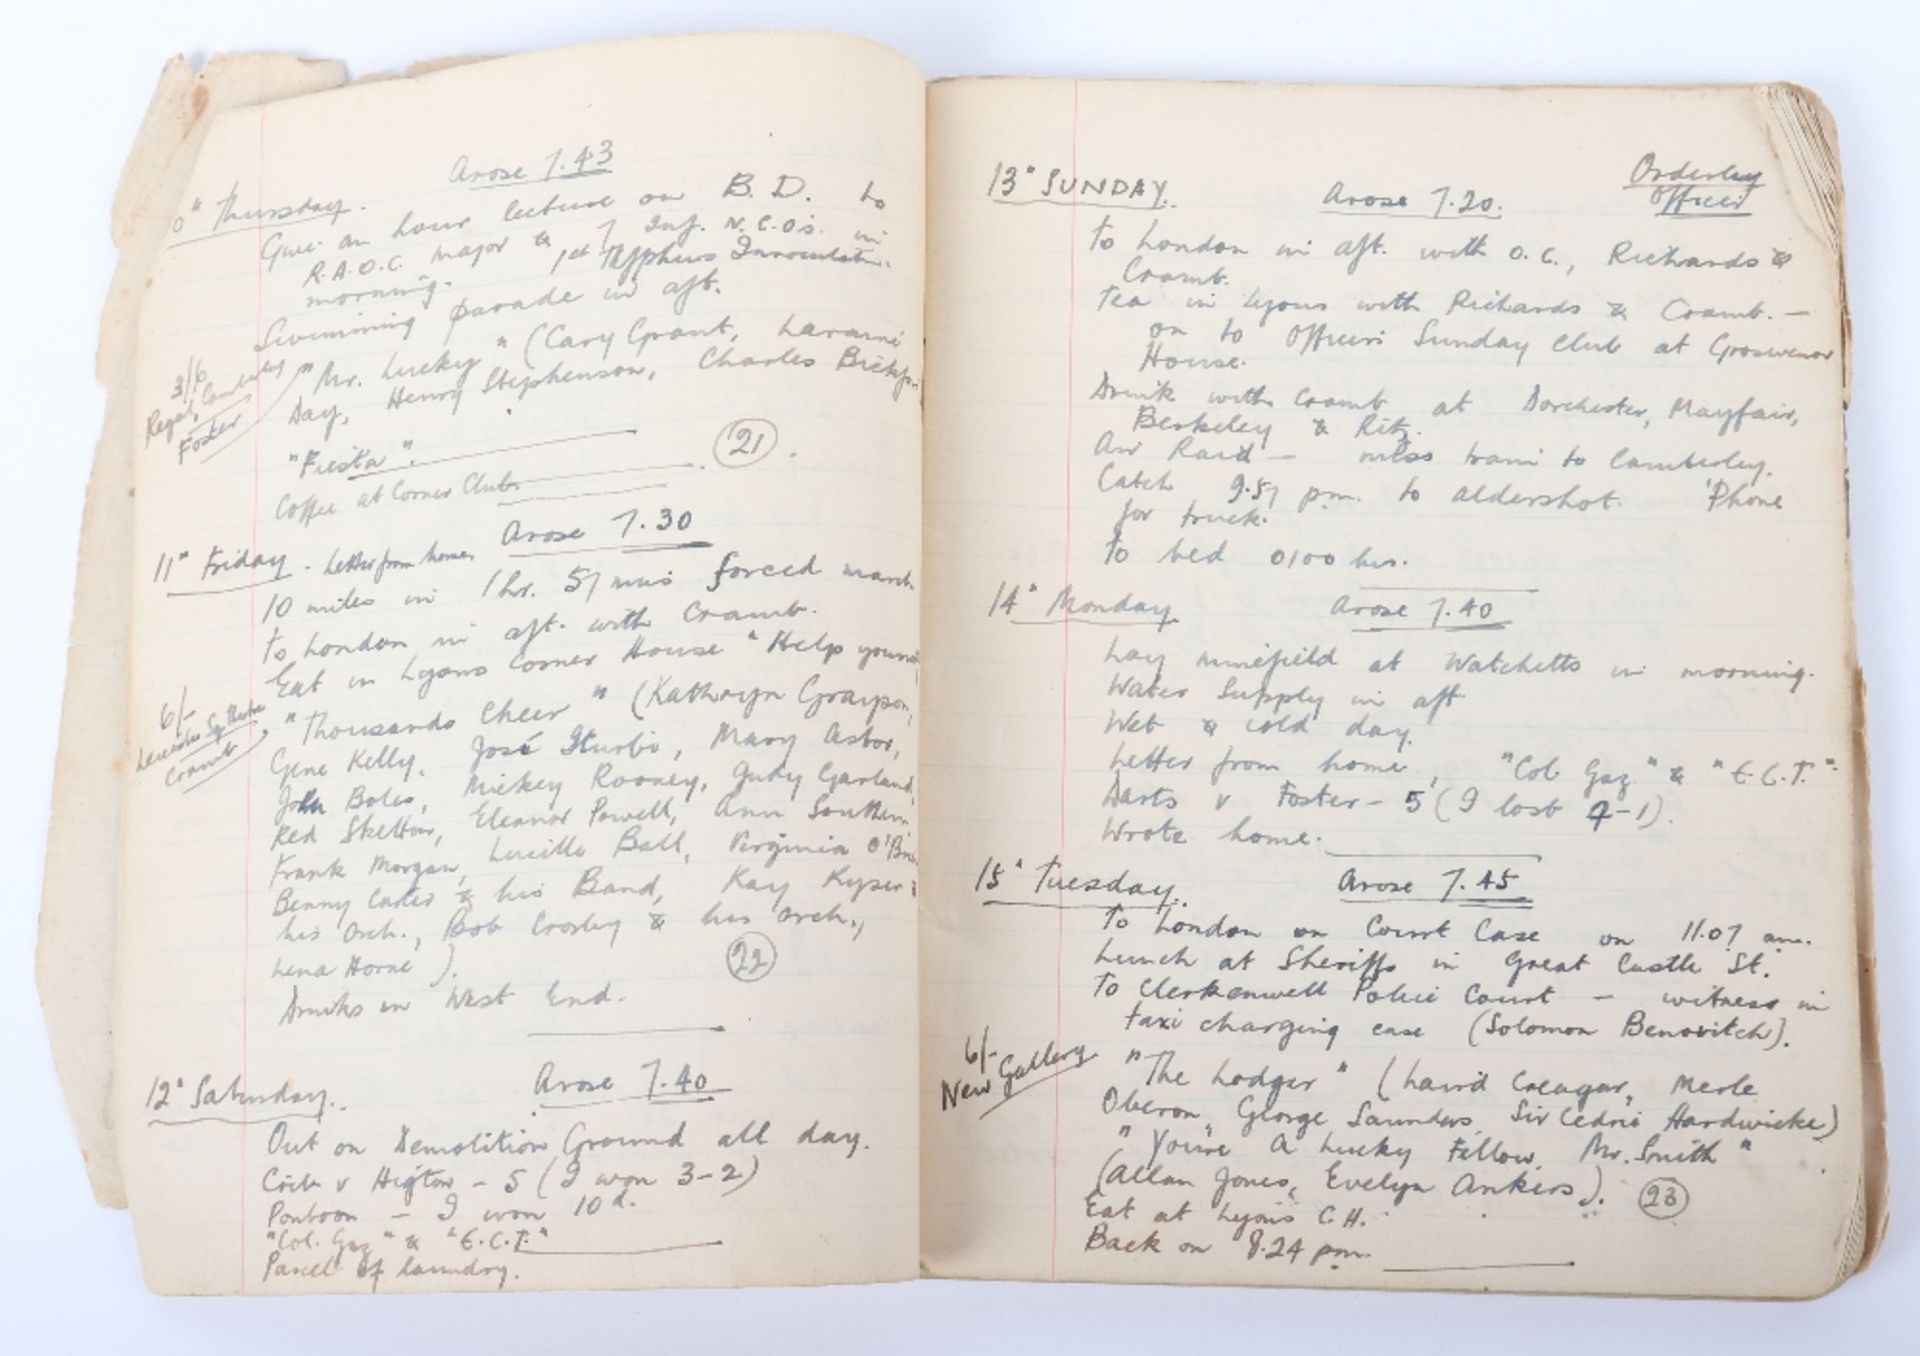 Arose 7.43
0" Thursday.
Gave an hour lecture on B.D. to
R.A.O.C. major & 7 Inf. N.C.O's. in
morning. 1st Typhus Innoculation.
Swimming parade in aft.
3/6
Regal, Camberley
Foster
"Mr. Lucky" (Cary Grant, Laraine
Day, Henry Stephenson, Charles Bickford
"Fiesta".
Coffee at Corner Club.
21
11" Friday. Letter from home. Arose 7.30
10 miles in 1 hr. 57 mins forced march
To London in aft. with Cramb.
Eat in Lyons Corner House "Help yourself
6/-
Leicester Sq Theatre
Cramb
"Thousands Cheer" (Kathryn Grayson,
Gene Kelly, José Iturbi, Mary Astor,
John Boles, Mickey Rooney, Judy Garland,
Red Skelton, Eleanor Powell, Ann Southern
Frank Morgan, Lucille Ball, Virginia O'Brien
Benny Carter & his Band, Kay Kyser &
his Orch., Bob Crosby & his orch.,
Lena Horne).
22
Drinks in West End.
12" Saturday. Arose 7.40
Out on Demolition Ground all day.
Crib v Higton - 5 (I won 3-2)
Pontoon - I won 10d.
"Col. Gaz" & "E.C.T."
Parcel of laundry.
13" SUNDAY. Arose 7.20. Orderley
Officer
To London in aft. with O.C., Richards &
Cramb.
Tea in Lyons with Richards & Cramb. -
on to Officers Sunday Club at Grosvenor
House.
Drink with Cramb at Dorchester, Mayfair,
Berkeley & Ritz.
Air Raid - miss train to Camberley.
Catch 9.57 pm. to Aldershot. 'Phone
for truck.
To bed 0100 hrs.
14" Monday Arose 7.40
Lay minefield at Watchetts in morning.
Water Supply in aft
Wet & cold day.
Letter from home, "Col Gaz" & "E.C.T."
Darts v Foster - 5 (I lost 4-1).
Wrote home.
15" Tuesday. Arose 7.45
To London on Court Case on 11.07 am.
Lunch at Sheriffs in Great Castle St.
To Clerkenwell Police Court - witness in
taxi charging case (Solomon Benovitch).
6/-
New Gallery
"The Lodger" (Laird Creagar, Merle
Oberon, George Saunders, Sir Cedric Hardwicke)
"You're A Lucky Fellow, Mr. Smith"
(Allan Jones, Evelyn Ankers). 23
Eat at Lyons C.H.
Back on 8.24 pm.